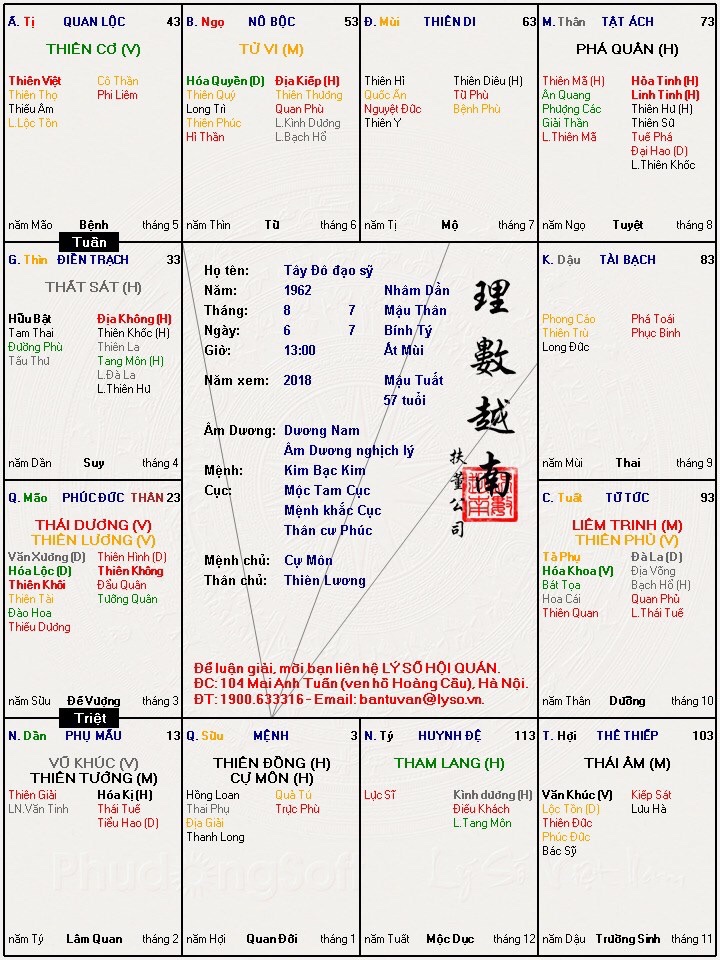 Ấ. Tị QUAN LỘC 43
THIÊN CƠ (V)
Thiên Việt Cô Thần
Thiên Thọ Phi Liêm
Thiếu Âm
L.Lộc Tồn
năm Mão Bệnh tháng 5
B. Ngọ NÔ BỘC 53
TỬ VI (M)
Hóa Quyền (D) Địa Kiếp (H)
Thiên Quý Thiên Thương
Long Trì Quan Phù
Thiên Phúc L.Kình Dương
Hỉ Thần L.Bạch Hổ
năm Thìn Tử tháng 6
Đ. Mùi THIÊN DI 63
Thiên Hỉ Thiên Diêu (H)
Quốc Ấn Tử Phù
Nguyệt Đức Bệnh Phù
Thiên Y
năm Tị Mộ tháng 7
M. Thân TẬT ÁCH 73
PHÁ QUÂN (H)
Thiên Mã (H) Hỏa Tinh (H)
Ân Quang Linh Tinh (H)
Phượng Các Thiên Hư (H)
Giải Thần Thiên Sứ
L.Thiên Mã Tuế Phá
Đại Hao (D)
L.Thiên Khốc
năm Ngọ Tuyệt tháng 8
Tuần
G. Thìn ĐIỀN TRẠCH 33
THẤT SÁT (H)
Hữu Bật Địa Không (H)
Tam Thai Thiên Khốc (H)
Đường Phù Thiên La
Tấu Thư Tang Môn (H)
L.Đà La
L.Thiên Hư
năm Dần Suy tháng 4
Họ tên: Tây Đô đạo sỹ
Năm: 1962 Nhâm Dần
Tháng: 8 7 Mậu Thân
Ngày: 6 7 Bính Tý
Giờ: 13:00 Ất Mùi
Năm xem: 2018 Mậu Tuất
57 tuổi
Âm Dương: Dương Nam
Âm Dương nghịch lý
Mệnh: Kim Bạc Kim
Cục: Mộc Tam Cục
Mệnh khắc Cục
Thân cư Phúc
Mệnh chủ: Cự Môn
Thân chủ: Thiên Lương
理數越南
扶董公司
Để luận giải, mời bạn liên hệ LÝ SỐ HỘI QUÁN.
ĐC: 104 Mai Anh Tuấn (ven hồ Hoàng Cầu), Hà Nội.
ĐT: 1900.633316 - Email: bantuvan@lyso.vn.
K. Dậu TÀI BẠCH 83
Phong Cáo Phá Toái
Thiên Trù Phục Binh
Long Đức
năm Mùi Thai tháng 9
Q. Mão PHÚC ĐỨC THÂN 23
THÁI DƯƠNG (V)
THIÊN LƯƠNG (V)
Văn Xương (D) Thiên Hình (D)
Hóa Lộc (D) Thiên Không
Thiên Khôi Đẩu Quân
Thiên Tài Tướng Quân
Đào Hoa
Thiếu Dương
năm Sửu Đế Vượng tháng 3
C. Tuất TỬ TỨC 93
LIÊM TRINH (M)
THIÊN PHỦ (V)
Tả Phụ Đà La (D)
Hóa Khoa (V) Địa Võng
Bát Tọa Bạch Hổ (H)
Hoa Cái Quan Phủ
Thiên Quan L.Thái Tuế
năm Thân Dưỡng tháng 10
Triệt
N. Dần PHỤ MẪU 13
VŨ KHÚC (V)
THIÊN TƯỚNG (M)
Thiên Giải Hóa Kị (H)
LN.Văn Tinh Thái Tuế
Tiểu Hao (D)
năm Tý Lâm Quan tháng 2
Q. Sửu MỆNH 3
THIÊN ĐỒNG (H)
CỰ MÔN (H)
Hồng Loan Quả Tú
Thai Phụ Trực Phù
Địa Giải
Thanh Long
năm Hợi Quan Đới tháng 1
N. Tý HUYNH ĐỆ 113
THAM LANG (H)
Lực Sĩ Kình dương (H)
Điếu Khách
L.Tang Môn
năm Tuất Mộc Dục tháng 12
T. Hợi THÊ THIẾP 103
THÁI ÂM (M)
Văn Khúc (V) Kiếp Sát
Lộc Tồn (D) Lưu Hà
Thiên Đức
Phúc Đức
Bác Sỹ
năm Dậu Trường Sinh tháng 11
Phudongsoft
Lý Số Việt Nam